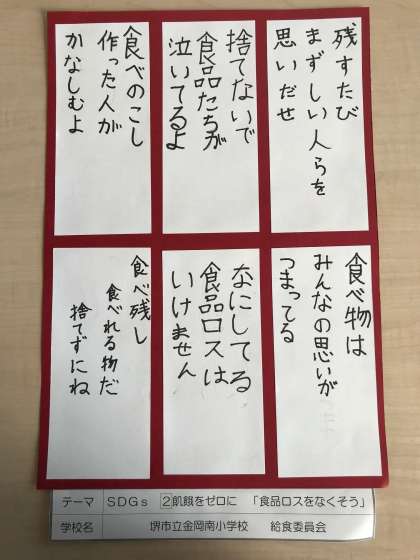 残すたび
まずしい人らを
思いだせ
捨てないで
食品たちが
泣いてるよ
食べのこし
作った人が
かなしむよ
食べ物は
みんなの思いが
つまってる
なにしてる
食品ロスは
いけません
食べ残し
食べれる物だ
捨てずにね
テーマ SDGs ②飢餓をゼロに 「食品ロスをなくそう」
学校名 堺市立金岡南小学校 給食委員会